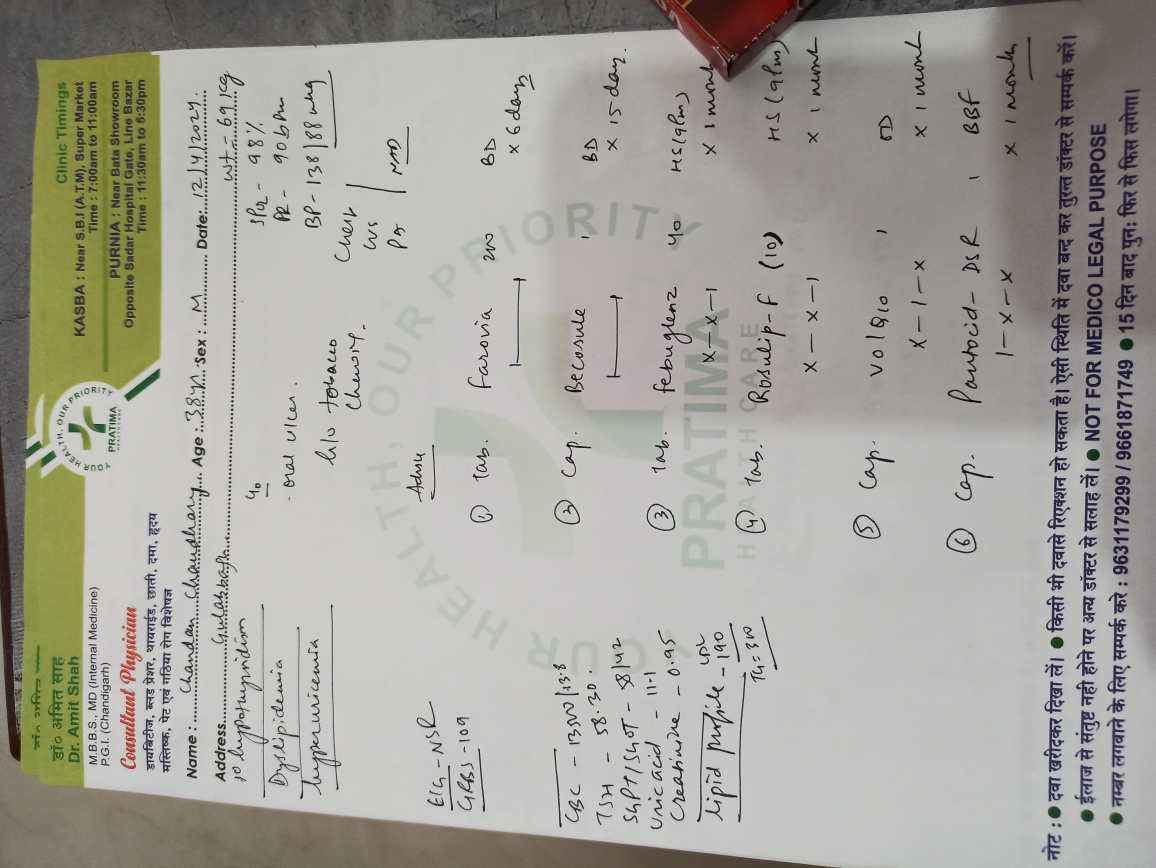 डॉ० अमित साह
Dr. Amit Shah
M.B.B.S., MD (Internal Medicine)
P.G.I. (Chandigarh)
Consultant Physician
डायबिटीज, ब्लड प्रेशर, थायराईड, छाती, दमा, हृदय
मस्तिष्क, पेट एवं गठिया रोग विशेषज्ञ
YOUR HEALTH, OUR PRIORITY
PRATIMA
Clinic Timings
KASBA : Near S.B.I (A.T.M), Super Market
Time : 7:00am to 11:00am
PURNIA : Near Bata Showroom
Opposite Sadar Hospital Gate, Line Bazar
Time : 11:30am to 5:30pm
Name : Chandan Chaudhary Age : 38yr Sex : M Date: 12/4/2024
Address Gulabbagh Wt - 69 kg
hypothyroidism
Dyslipidemia
hyperuricemia
. oral ulcer.
h/o tobacco
chewing.
SPO2 - 98%
PR - 90 bpm
BP - 138/88 mmhg
Chest
CVS
P/A
NAD
ECG - NSR
GRBS - 109
CBC - 13500/13.8
TSH - 58.30.
SGPT/SGOT - 58/42
Uric acid - 11.1
Creatinine - 0.95
Lipid profile - LDL 190
TG = 300
Advice
① Tab. Farovia 200 BD
x 6 days
② Cap. Becosule 1 BD
x 15 day.
③ Tab. Febuglenz 40 HS (9pm)
x-x-1 x 1 month
④ Tab. Rosulip-F (10) HS (9pm)
x-x-1 x 1 month
⑤ Cap. Vol Q10 1 OD
x-1-x x 1 month
⑥ Cap. Pantocid-DSR 1 BBF
1-x-x x 1 month
YOUR HEALTH, OUR PRIORITY
PRATIMA
HEALTH CARE
नोट : ● दवा खरीदकर दिखा लें। ● किसी भी दवासे रिएक्शन हो सकता है। ऐसी स्थिति में दवा बन्द कर तुरन्त डॉक्टर से सम्पर्क करें।
● ईलाज से संतुष्ट नही होने पर अन्य डॉक्टर से सलाह लें। ● NOT FOR MEDICO LEGAL PURPOSE
● नम्बर लगवाने के लिए सम्पर्क करे : 9631179299 / 9661871749 ● 15 दिन बाद पुनः फिर से फिस लगेगा।